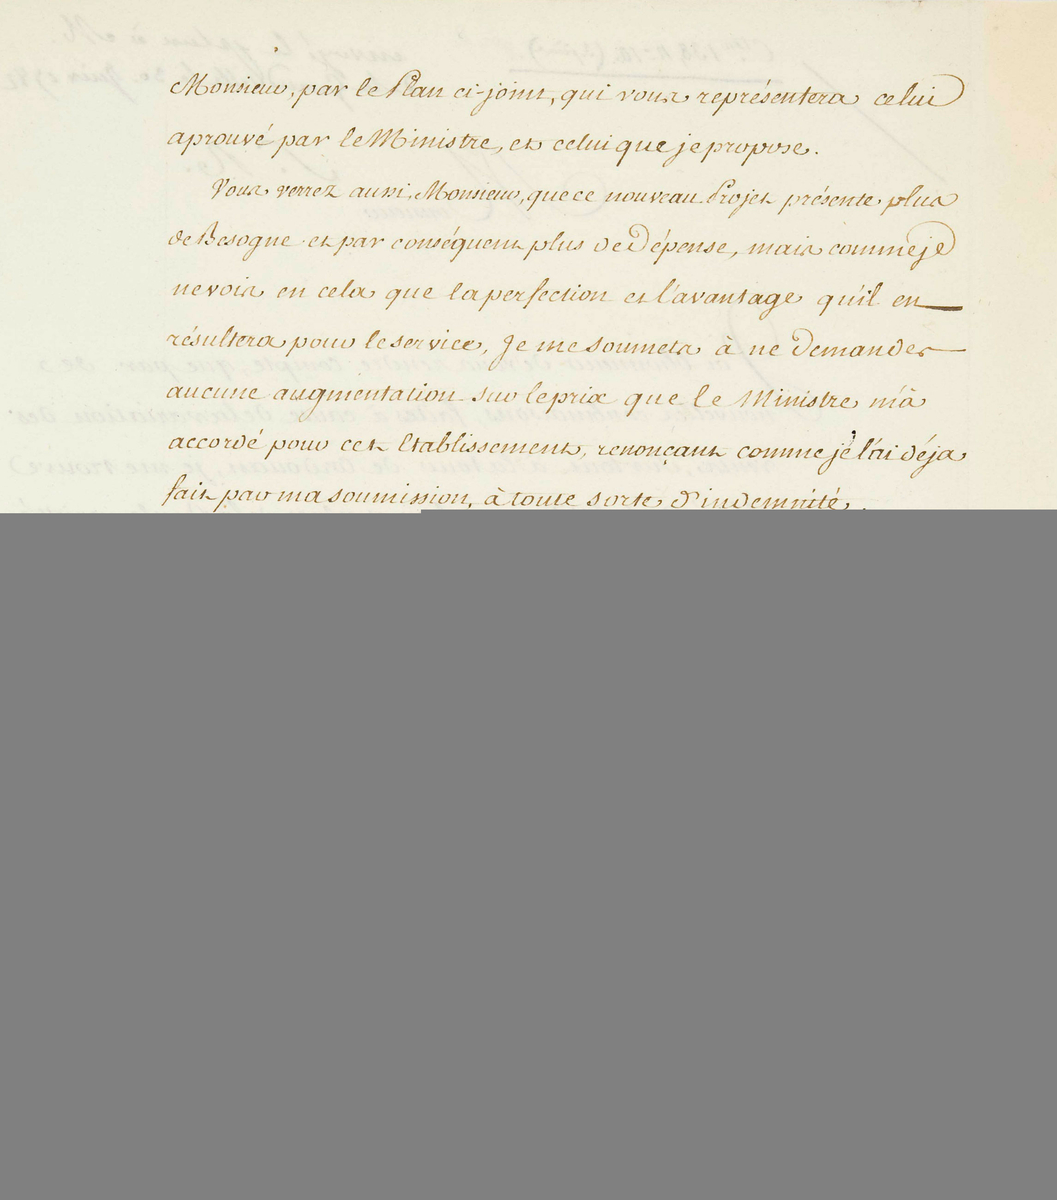 Monsieur, par le Plan ci-joint, qui vous représentera celui
aprouvé par le Ministre, et celui que je propose.
Vous verrez aussi, Monsieur, que ce nouveau Projet présente plus
de Besogne et par conséquent plus de Dépense, mais comme je
ne vois en cela que la perfection et l'avantage qu'il en
résultera pour le service, Je me soumets à ne demander
aucune augmentation sur le prix que le Ministre m'à
accordé pour cet Etablissement, renonçant comme je l'ai déja
fait par ma soumission, à toute sorte d'indemnité.